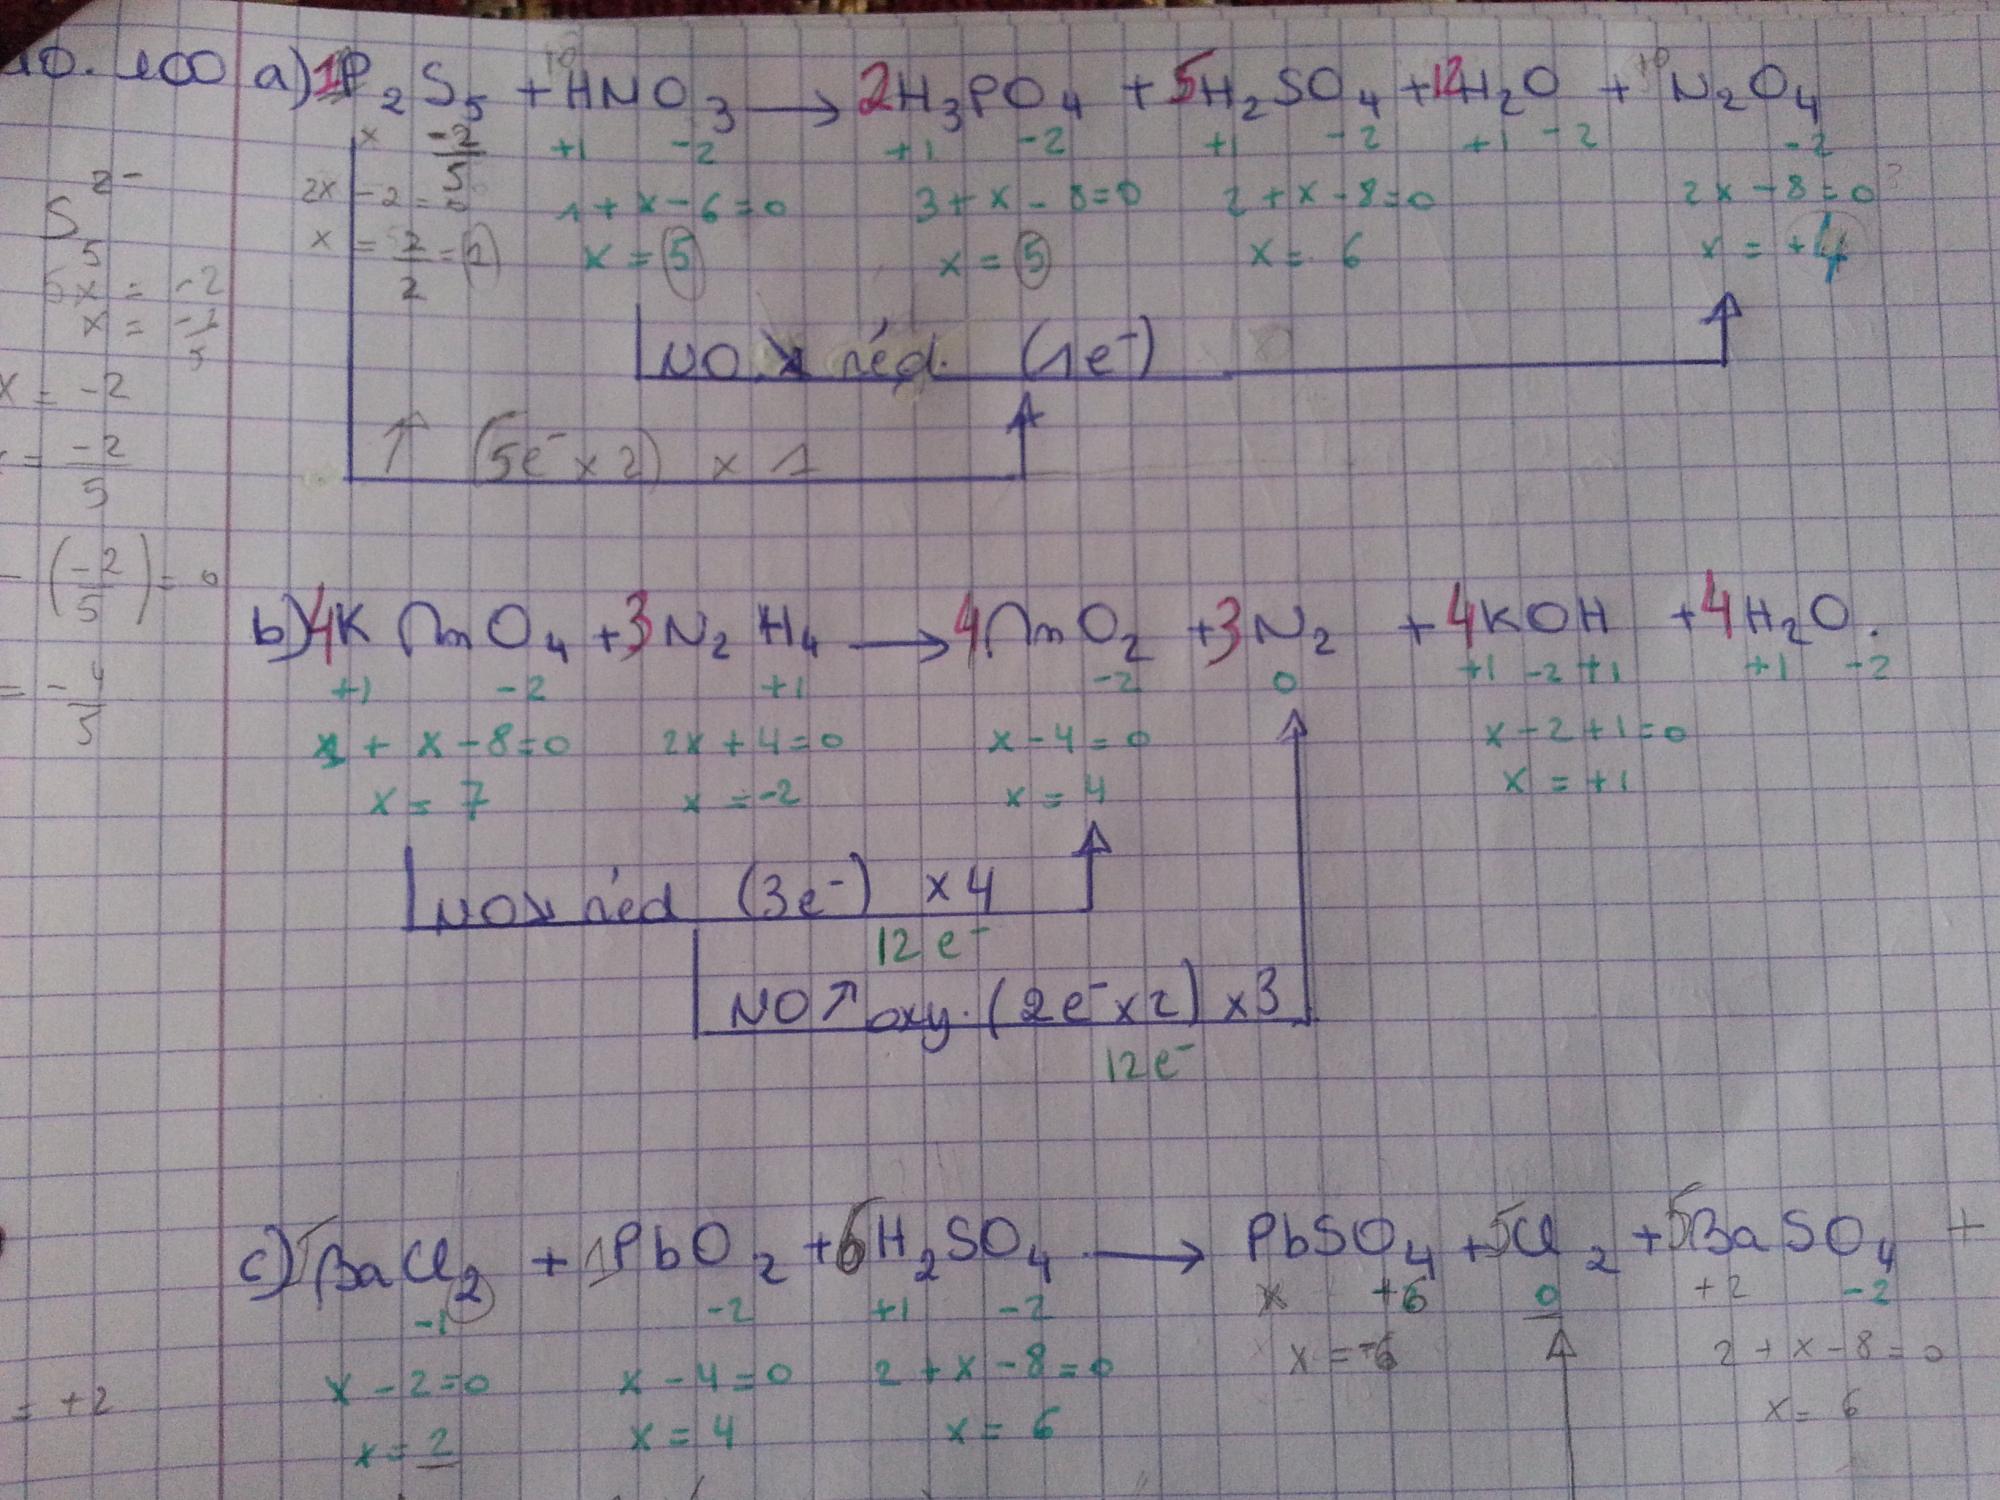 10. 100 a) 1P₂S₅ + HNO₃ → 2H₃PO₄ + 5H₂SO₄ + 12H₂O + N₂O₄
x -2/5 +1 -2 +1 -2 +1 -2 +1 -2 -2
2x - 2 = 0 1 + x - 6 = 0 3 + x - 8 = 0 2 + x - 8 = 0 2x - 8 = 0
x = 2/2 = 1 x = 5 x = 5 x = 6 x = +4
NO ↘ réd. (1e⁻)
↑ (5e⁻ x 2) x 1
S₅²⁻
5x = -2
x = -2/5
x = -2
= -2/5
- (-2/5) = 0
= -4/5
b) 4KMnO₄ + 3N₂H₄ → 4MnO₂ + 3N₂ + 4KOH + 4H₂O.
+1 -2 +1 -2 0 +1 -2 +1 +1 -2
1 + x - 8 = 0 2x + 4 = 0 x - 4 = 0 x - 2 + 1 = 0
x = 7 x = -2 x = 4 x = +1
NO ↘ réd (3e⁻) x 4
12 e⁻
NO ↗ oxy. (2e⁻ x 2) x 3
12e⁻
c) 5BaCl₂ + 1PbO₂ + 6H₂SO₄ → PbSO₄ + 5Cl₂ + 5BaSO₄ +
-1 -2 +1 -2 x +6 0 +2 -2
x - 2 = 0 x - 4 = 0 2 + x - 8 = 0 x = -6 2 + x - 8 = 0
x = 2 x = 4 x = 6 x = 6
= +2